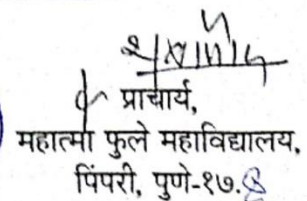 प्राचार्य,
महात्मा फुले महाविद्यालय,
पिंपरी, पुणे-१७.